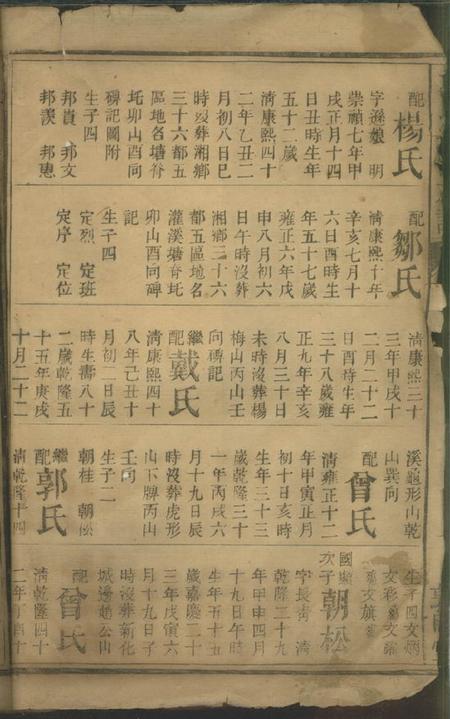 配楊氏
字遜娘 明
崇禎七年甲
戌正月十四
日丑時生年
五十二歲
清康熙四十
二年乙丑二
月初八日巳
時歿葬湘鄉
三十六都五
區地名塘脊
坵卯山酉向
碑記圖附
生子四
邦貴 邦文
邦選 邦憲
配鄒氏
清康熙十年
辛亥七月十
六日酉時生
年五十七歲
雍正六年戊
申八月初六
日午時沒葬
湘鄉三十六
都五區地名
灌溪塘脊坵
卯山酉向碑
記
生子四
定烈 定班
定序 定位
清康熙三十
三年甲戌十
二月二十二
日酉時生年
三十八歲雍
正九年辛亥
八月三十日
未時沒葬楊
梅山丙山壬
向碑記
繼配戴氏
清康熙四十
八年己丑十
月初二日辰
時生壽八十
二歲乾隆五
十五年庚戌
十月二十二
溪龜形山乾
山巽向
配曾氏
清雍正十二
年甲寅正月
初十日亥時
生年三十三
歲乾隆三十
一年丙戌六
月十九日辰
時沒葬虎形
山下牌丙山
壬向
生子二
朝桂 朝松
繼配郭氏
清乾隆十四
生子四文炳
文彩 文
文旗
國 次子朝松
字長青 清
乾隆二十九
年甲申四月
十九日午時
生年五十五
歲嘉慶二十
三年戊寅六
月十九日子
時沒葬新化
城邊趙公山
配曾氏
清乾隆四十
二年丁酉十